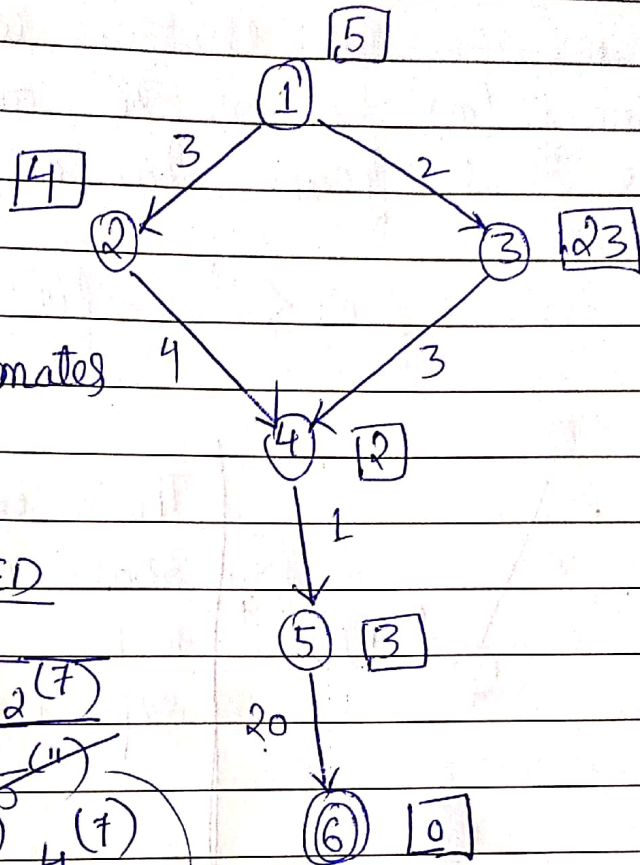 5
1
3 2
4
2 3 23
mates 4 3
4 2
1
ED
5 3
2 (7)
20
(11)
4 (7) 6 0